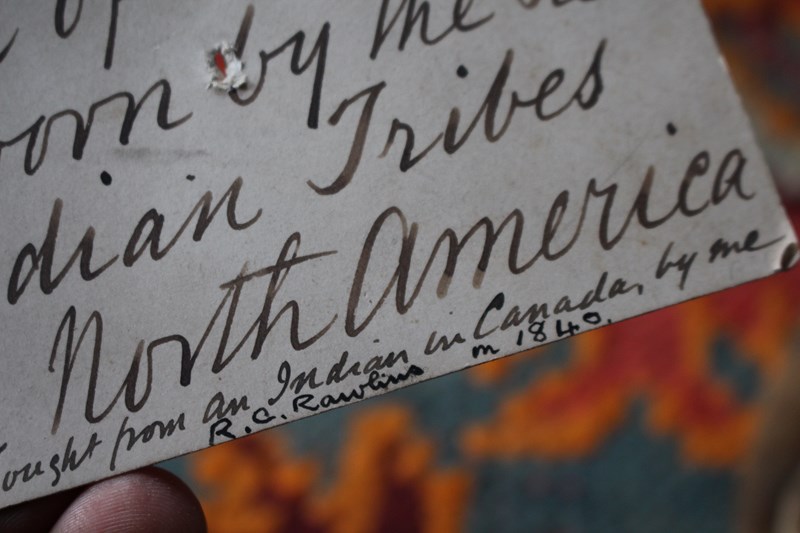 of
worn by the
dian Tribes
North America
ought from an Indian in Canada, by me
R. C. Rawlins in 1840.